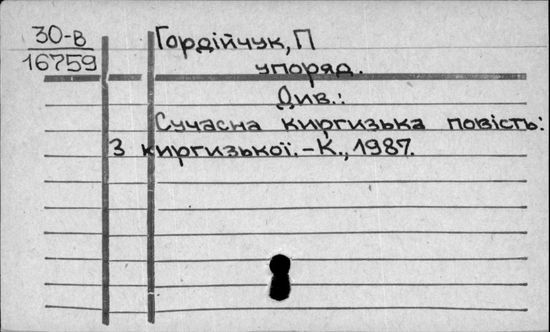 30-в
16759
Гордійчук, П
упоряд.
Див.:
Сучасна киргизька повість:
З киргизької.-К., 1987.